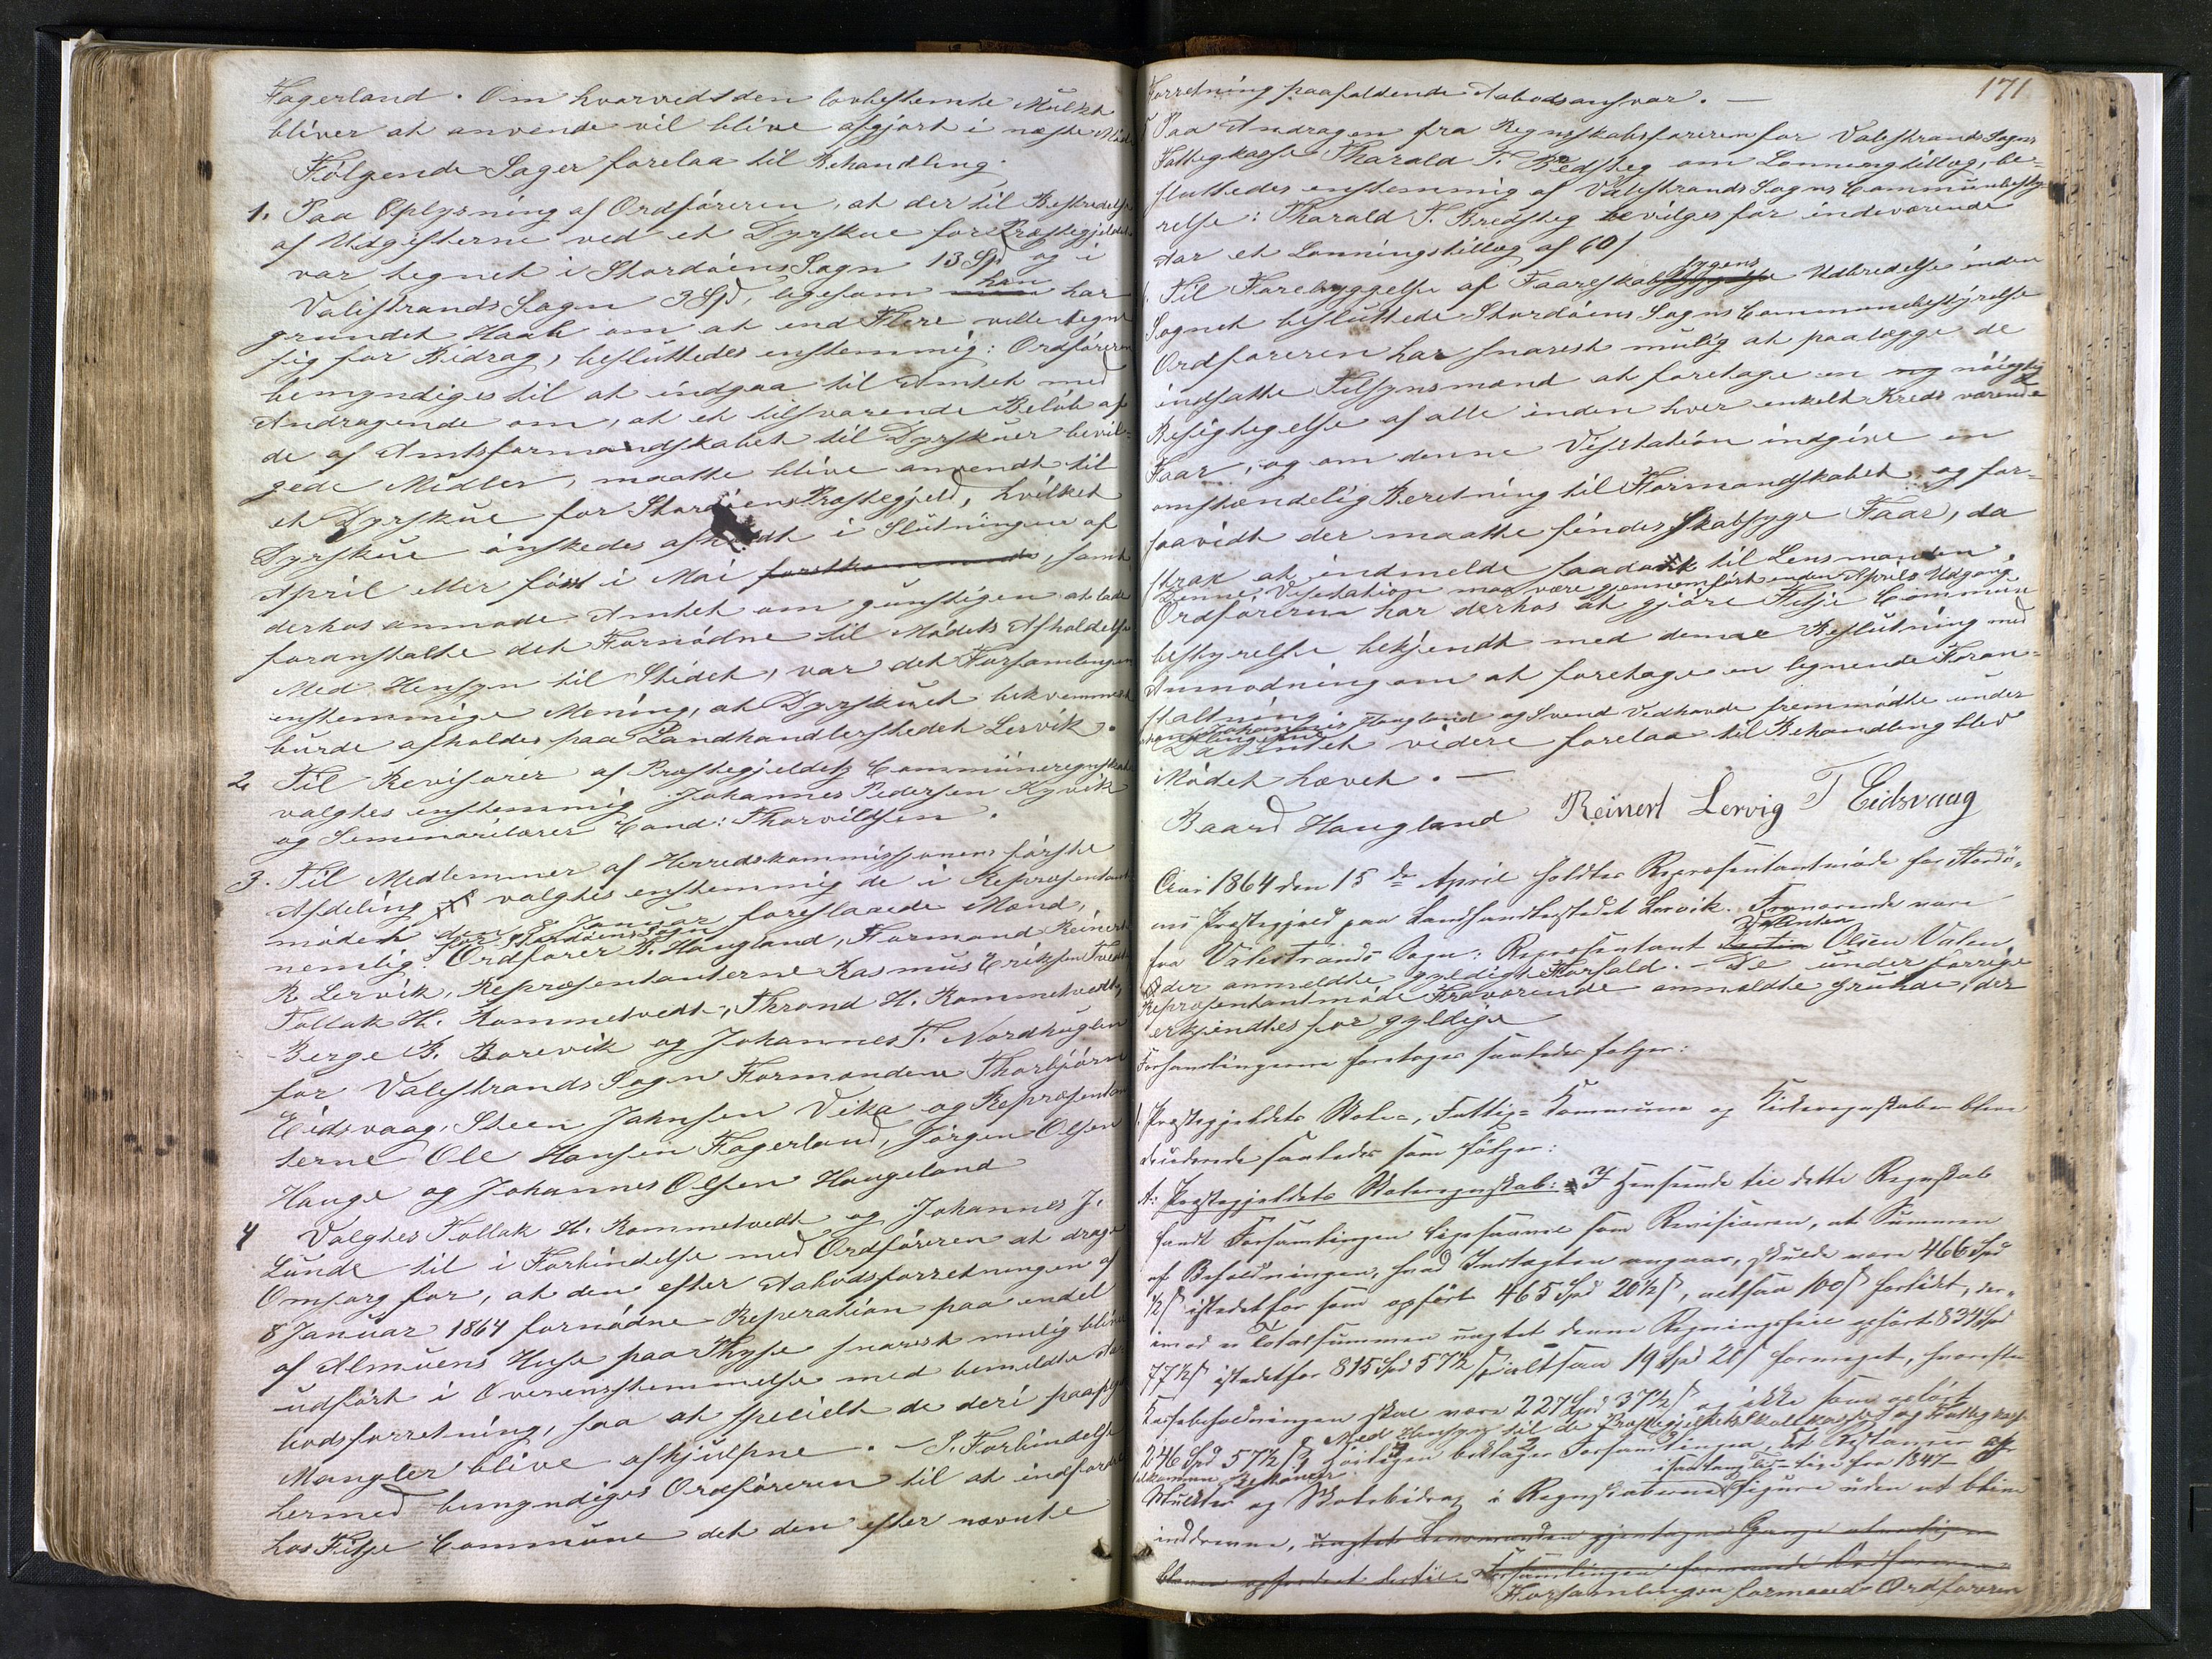 Fagerland. Om hvorvidt den lovbestemte Mulkt
bliver at anvende vil blive afgjort i næste Möde
Følgende Sager forelaa til Behandling.
1. Paa Oplysning af Ordføreren, at der til Bestridelse
af Udgifterne ved et Dyrskue for Præstegjeldet
var tegnet i Stordøens Sogn 13 Spd og i
Valestrands Sogn 9 Spd, ligesom han har
grundet Haab om at end Flere ville tegne
sig for Bidrag, besluttedes enstemmig: Ordføreren
bemyndiges til at indgaa til Amtet med
Andragende om, at et tilsvarende Beløb af
de af Amtsformandskabet til Dyrskuer bevil-
gede Midler, maatte blive anvendt til
et Dyrskue for Stordøens Præstegjeld, hvilket
Dyrskue ønskedes afholdt i Slutningen af
April eller først i Mai forstkommende, samt
derhos anmode Amtet om gunstigen at lade
foranstalte det Fornødne til Mødets Afholdelse
Med Hensyn til Stedet, var det Forsamlingens
enstemmige Mening, at Dyrskuet bekvemmest
burde afholdes paa Landhandlerstedet Lervik.
2. Til Revisorer af Præstegjeldets Communeregnskaber
valgtes enstemmig Johannes Pedersen Kyvik
og Seminarilærer Cand: Thorvildsen.
3. Til Medlemmer af Herredskommissionens første
Afdeling valgtes enstemmig de i Repræsentant-
mødet den 8 Januar foreslaaede Mænd,
for Stordøens Sogn
nemlig: Ordfører B. Haugland, Formand Reinert
R Lervik, Repræsentanterne Rasmus Eriksen Tvedt
Tollak H. Rommetvedt, Thrond H. Rommetvedt,
Berge B. Borevik og Johannes T. Nordhuglen
for Valestrands Sogn Formændene Thorbjørn
Eidsvaag, Steen Johnsen Vika og Repræsentan
terne Ole Hansen Fagerland, Jørgen Olsen
Hauge og Johannes Olsen Haugeland
4 Valgtes Tollak H. Rommetvedt og Johannes J.
Lunde til i Forbindelse med Ordføreren at drage
Omsorg for, at den efter Aabodsforretningen af
8 Januar 1864 fornødne Reperation paa endel
af Almuens Huse paa Thyse snarest mulig bliver
udført i Overensstemmelse med bemeldte Aa
bodsforretning, saa at specielt de deri paapegede
Mangler blive afhjulpne. – I Forbindelse
hermed bemyndiges Ordføreren til at indfordre
hos Fitje Commune det den efter nævnte
171
Forretning paafaldende Aabodsansvar. –
Paa Andragen fra Regnskabsføreren for Valestrands Sogns
Fattigkasse Tharald T. Bredsteg om Lønningstillæg, be-
sluttedes enstemmig af Valestrands Sogns Communebesty-
relse: Tharald T. Bredsteg bevilges for indeværende
Aar et Lønningstillæg af 60 ſ
Til Forebyggelse af Faareskabsygens Udbredelse inden
Sognet besluttede Stordøens Sogns Communebestyrelse
Ordføreren har snarest mulig at paalægge de
indsatte Tilsynsmænd at foretage en ny nøiagtig
Besigtigelse af alle inden hver enkelt Kreds værende
Faar, og om denne Visitation indgive en
omstændelig Beretning til Formandskabet og for-
saavidt der maatte findes skabsyge Faar, da
strax at indmelde saadant til Lensmanden.
Denne Visitation maa være gjennemført inden Aprils Udgang
Ordføreren har derhos at gjøre Fitje Commune
bestyrelse bekjendt med denne Beslutning med
Anmodning om at foretage en lignende Foran-
staltning.
Johannes Haugland og Svend Vedhovde fremmødte under
Da Intet videre forelaa til Behandling blev
Mødet hævet. –
Baard Haugland Reinert Lervig T Eidsvaag
1864 den 15de April holdtes Repræsentantmøde for Stordø-
ens Præstegjeld paa Landhandlerstedet Lervik. Fraværende vare
Valentin
fra Valestrands Sogn: Repræsentant Olsen Valen
der anmeldte gyldigt Forfald. – De under forrige
Repræsentantmøde Fraværende anmeldte Grunde, der
erkjendtes for gyldige
Forhandlingerne foretoges saaledes følger:
1. Præstegjeldets Skole-, Fattig- Kommune og Kirkeregnskaber bleve
deciderede saaledes som følger:
A: Præstegjeldets Skoleregnskab: I Henseende til dette Regnskab
fandt Forsamlingen ligesaavel som Revisionen, at Summen
af Beholdningen, hvad Indtægten angaar, skulde være 466 Spd
½ ſ istedetfor som opført 465 Spd 20½ ſ, altsaa 100 ſ forlidt, der-
imod er Totalsummen uagtet denne Regningsfeil opført 834 Spd
77½ ſ istedetfor 815 Spd 57½ ſ altsaa 19 Spd 20 ſ formeget, hvorefter
Kassebeholdningen skal være 227 Spd 37½ ſ og ikke som opført
246 Spd 57½ ſ. Med Hensyn til de Præstegjeldets Skolekasse og Fattigkasse
tilkommen
høiligen beklager Forsamlingen, at Restancer af
lige fra 1847
Mulkter og Skolebidrag i Regnskaberne figurere uden at blive
inddrevne, uagtet Lensmanden gjentagne Gange
bleven opfordret dertil. Forsamlingen formaaede Ordføreren
Forsamlingen formaaede Ordføreren